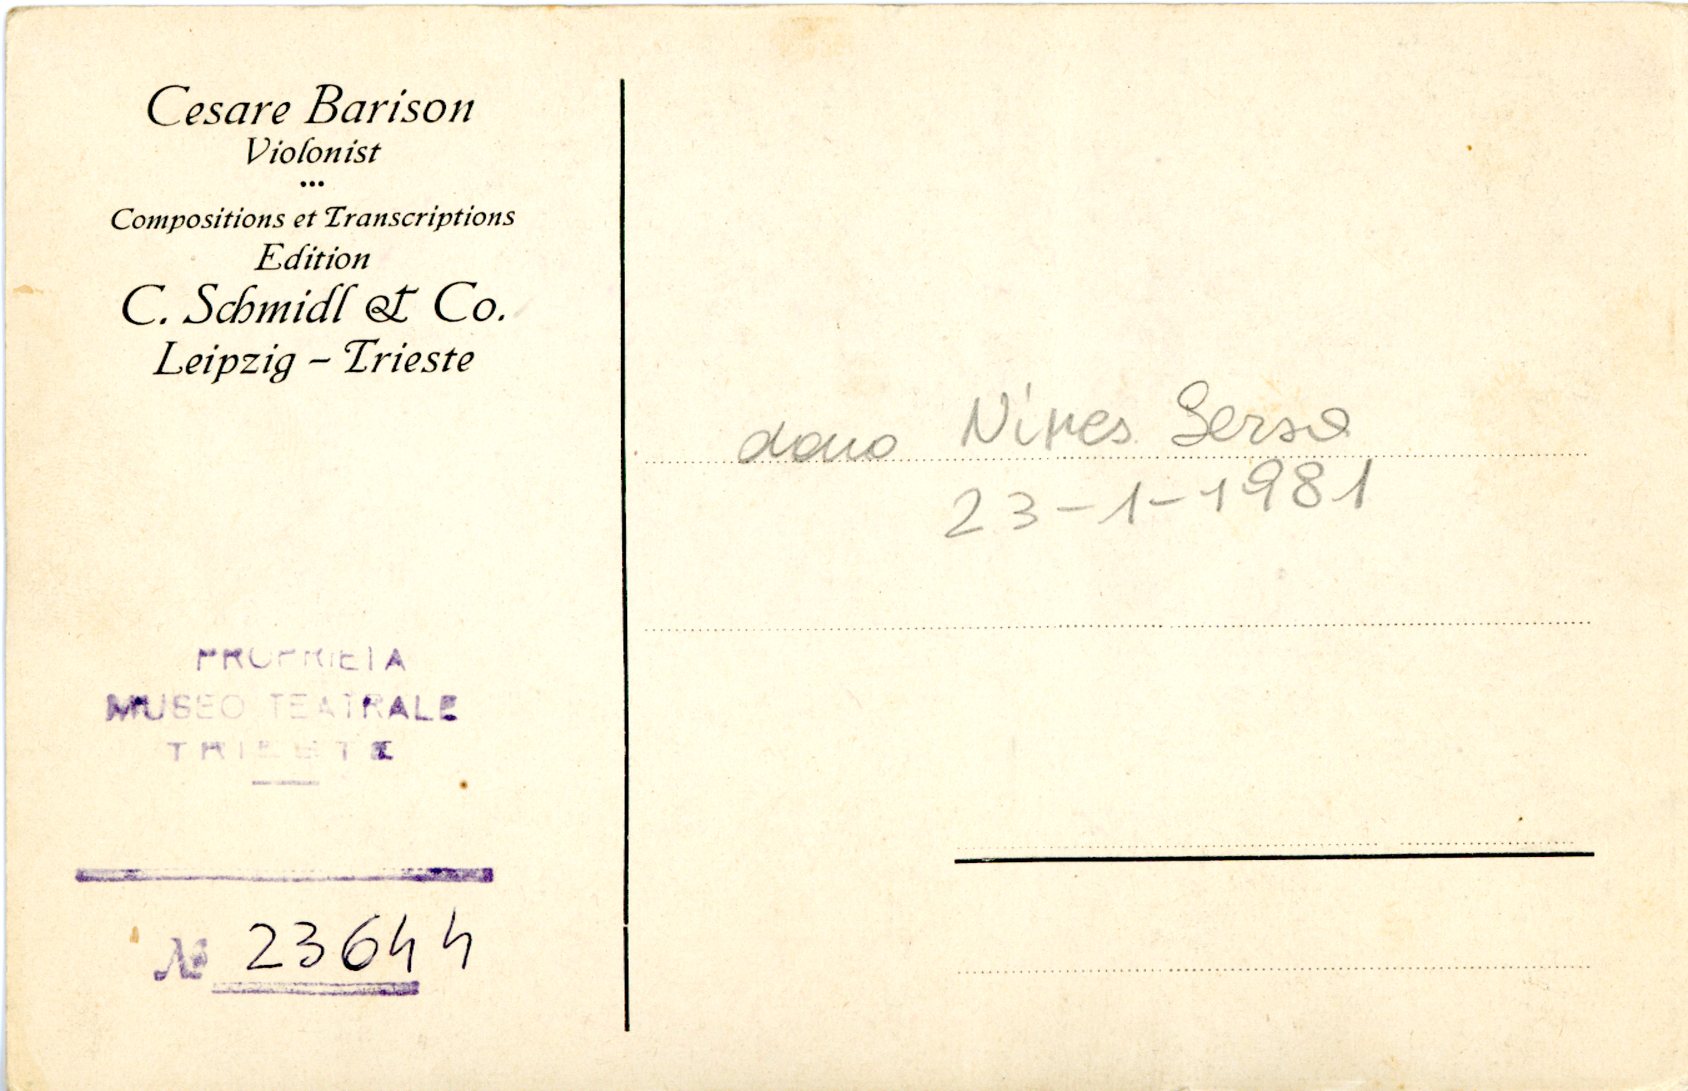 Cesare Barison
Violonist
...
Compositions et Transcriptions
Edition
C. Schmidl & Co.
Leipzig – Trieste
PROPRIETA
MUSEO TEATRALE
TRIESTE
№ 23644
dono
23-1-1981